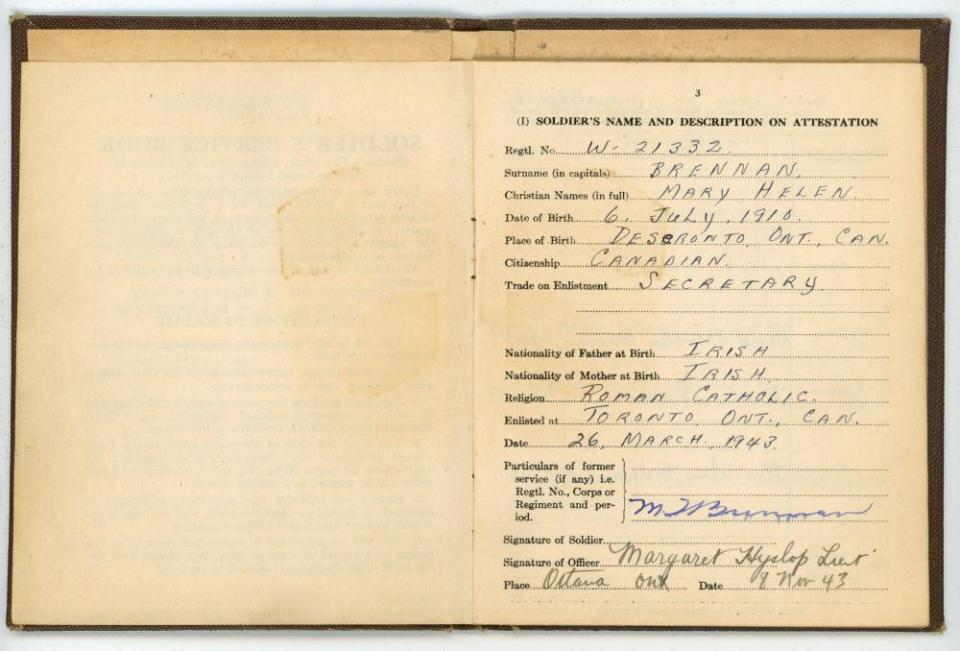 3
(I) SOLDIER'S NAME AND DESCRIPTION ON ATTESTATION
Regtl. No. W-21332.
Surname (in capitals) BRENNAN.
Christian Names (in full) MARY HELEN.
Date of Birth 6, JULY, 1910.
Place of Birth DESERONTO, ONT., CAN.
Citizenship CANADIAN.
Trade on Enlistment SECRETARY
Nationality of Father at Birth IRISH
Nationality of Mother at Birth IRISH.
Religion ROMAN CATHOLIC.
Enlisted at TORONTO, ONT., CAN.
Date 26, MARCH, 1943.
Particulars of former
service (if any) i.e.
Regtl. No., Corps or
Regiment and per-
iod. M H Brennan
Signature of Soldier
Signature of Officer Margaret Hyslop Lieut
Place Ottawa Ont Date 8 Nov 43